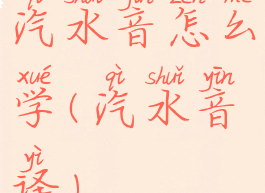 qì shuǐ yīn zěn me
汽水音怎么
xué qì shuǐ yīn
学(汽水音
yì
译)